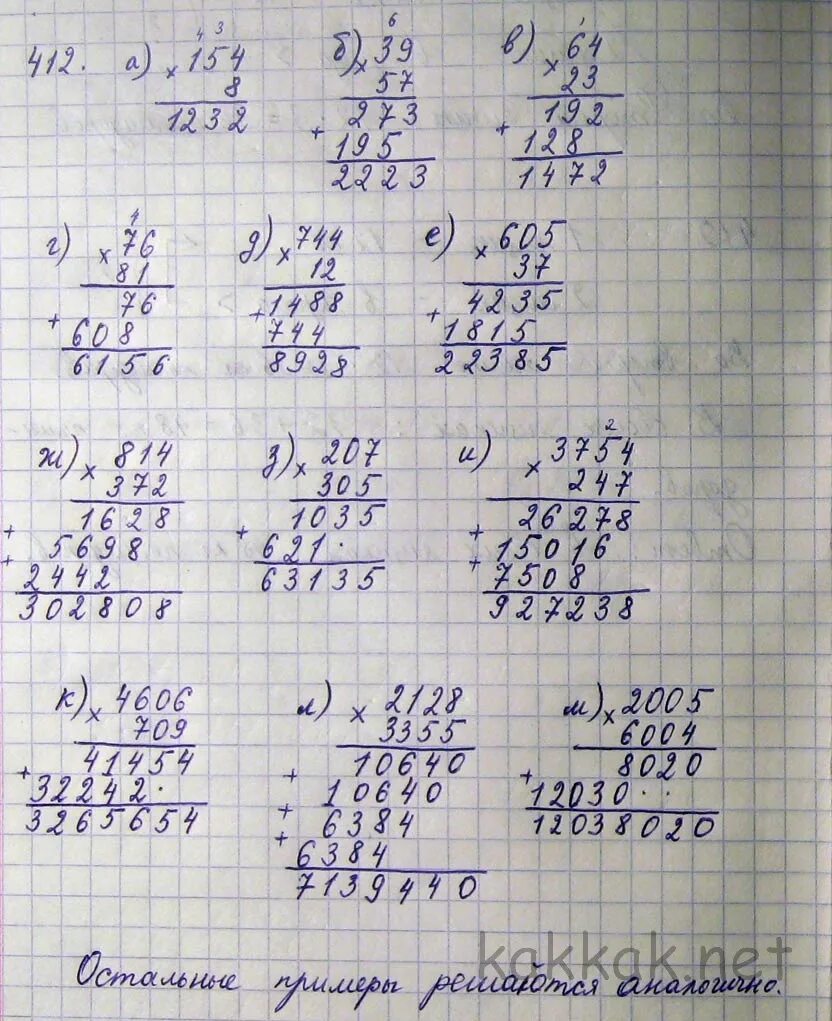 412. а) × 154 б) × 39 в) × 64
4 3 6 1
8 57 23
1232 273 192
+ 195 + 128
2223 1472
г) × 76 д) × 744 е) × 605
4
81 12 37
76 1488 4235
+ 608 + 744 + 1815
6156 8928 22385
ж) × 814 з) × 207 и) × 3754
2
372 305 247
1628 1035 26278
+ 5698 + 621· + 15016
+ 2442 63135 + 7508
302808 927238
к) × 4606 л) × 2128 м) × 2005
709 3355 6004
41454 10640 8020
+ 32242· + 10640 + 12030··
3265654 + 6384 12038020
+ 6384
7139440
kakkak.net
Остальные примеры решаются аналогично.